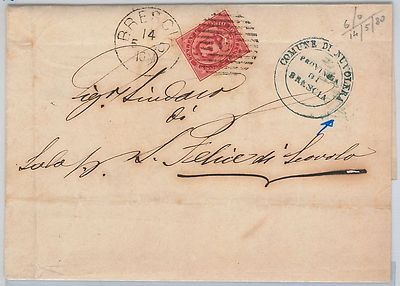 BRESCIA
14
COMUNE DI NUVOLERA
PROVINCIA
DI
BRESCIA
14/5/80
Sig. Sindaco
di
Salò p. S. Felice di Scovolo